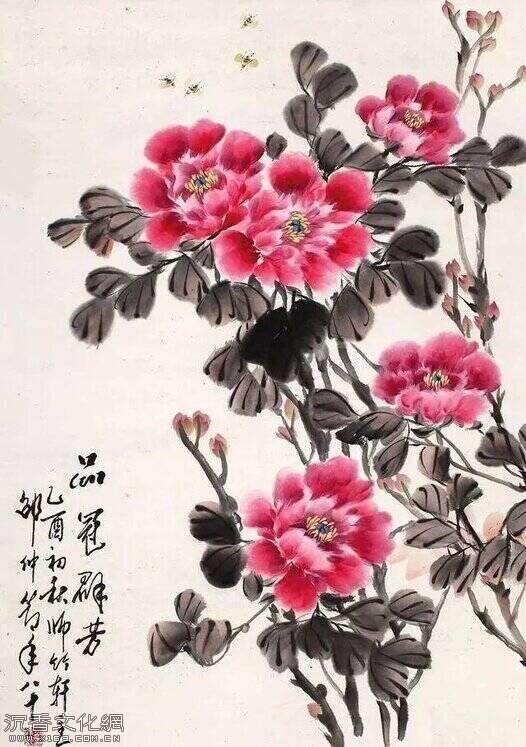 品冠群芳
乙酉初秋师竹轩主
邹仲节年八十
沉香文化網
WWW.X1968.COM.CN